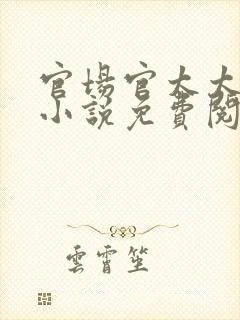 官場官太太
小說免費閱
雲霄笙